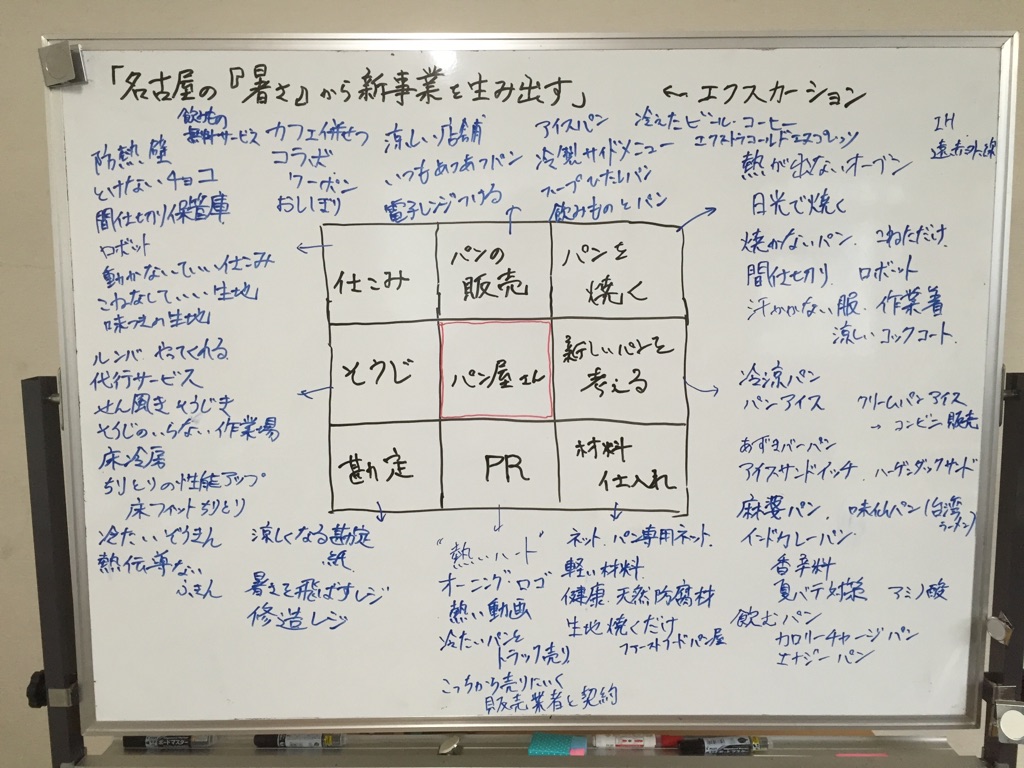 「名古屋の『暑さ』から新事業を生み出す」 ← エクスカーション
飲み物の
無料サービス
防熱壁
とけないチョコ
間仕切り保管庫
ロボット
動かないでいい仕こみ
こねなくていい生地
味つきの生地
カフェ併せつ
コラボ
クーポン
おしぼり
涼しい店舗
いつもあつあつパン
電子レンジつける
アイスパン
冷製サイドメニュー
スープひたしパン
飲みものとパン
冷えたビール・コーヒー
エクストラコールドエスプレッソ
IH
遠赤外線
熱が出ないオーブン
日光で焼く
焼かないパン、こねただけ、
間仕切り、ロボット
汗かかない服、作業着
涼しいコックコート、
仕こみ
パンの
販売
パンを
焼く
そうじ
パン屋さん
新しいパンを
考える
勘定
PR
材料
仕入れ
ルンバ やってくれる
代行サービス
せん風きそうじき
そうじのいらない作業場
床冷房
ちりとりの性能アップ
床フィットちりとり
冷たいぞうきん
熱伝導ない
ふきん
冷涼パン
パンアイス クリームパンアイス
→ コンビニ販売
あずきバーパン
アイスサンドイッチ、ハーゲンダッツサンド
麻婆パン、味仙パン(台湾
ラーメン)
インドカレーパン
香辛料
夏バテ対策 アミノ酸
飲むパン
カロリーチャージパン
エナジーパン
涼しくなる勘定
紙
暑さを飛ばすレジ
修造レジ
"熱いハート"
オーニング・ロゴ
熱い動画
冷たいパンを
トラック売り
こっちから売りにいく
販売業者と契約
ネット、パン専用ネット、
軽い材料
健康、天然防腐材
生地焼くだけ
ファーストフードパン屋
ボードマスター